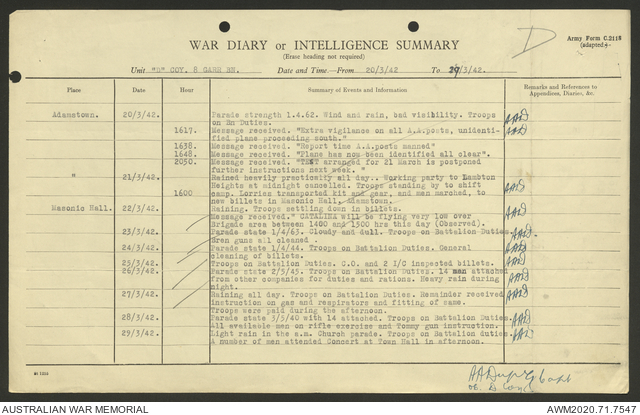 D
Army Form C.2118
(adapted)
WAR DIARY or INTELLIGENCE SUMMARY
(Erase heading not required)
Unit "D" COY. 8 GARR BN. Date and Time—From 20/3/42 To 29/3/42.
Place Date Hour Summary of Events and Information Remarks and References to
Appendices, Diaries, &c.
Adamstown. 20/3/42. Parade strength 1.4.62. Wind and rain, bad visibility. Troops
on Bn Duties.
1617. Message received. "Extra vigilance on all A.A.posts, unidenti-
fied plane proceeding south."
1638. Message received. "Report time A.A.posts manned"
1648. Message received. "Plane has now been identified all clear".
2050. Message received. "TEST arranged for 21 March is postponed
further instructions next week. "
" 21/3/42. Rained heavily practically all day.. Working party to Lambton
Heights at midnight cancelled. Troops standing by to shift
1600 camp. Lorries transported kit and gear, and men marched, to
new billets in Masonic Hall, Adamstown.
Masonic Hall. 22/3/42. Raining. Troops settling down in billets.
Message received." CATALINA will be flying very low over
Brigade area between 1400 and 1500 hrs this day (Observed).
23/3/42. Parade state 1/4/63. Cloudy and dull. Troops on Battalion-Duties.
Bren guns all cleaned .
24/3/42. Parade state 1/4/44. Troops on Battalion Duties. General
cleaning of billets.
25/3/42. Troops on Battalion Duties. C.O. and 2 I/C inspected billets.
26/3/42. Parade state 2/3/45. Troops on Battalion Duties. 14 man attached
from other companies for duties and rations. Heavy rain during
night.
27/3/42. Raining all day. Troops on Battalion Duties. Remainder received
instruction on gas and respirators and fitting of same.
Troops were paid during the afternoon.
28/3/42. Parade state 3/5/40 with 14 attached. Troops on Battalion Duties.
All available men on rifle exercise and Tommy gun instruction.
29/3/42. Light rain in the a.m. Church parade. Troops on Battalion duties.
A number of men attended Concert at Town Hall in afternoon.
Capt
OC. D Coy
AUSTRALIAN WAR MEMORIAL AWM2020.71.7547